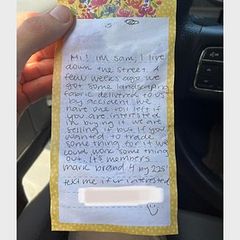 Hi! im Sam, I live
down the street. A
few weeks ago we
got some landscaping
fabric delivered to us
by accident. We
have one roll left if
you are interested
in buying it we are
selling it but if you
wanted to trade
something for it we
could work something
out. Its members
mark brand 4 by 225'
text me if ur interested